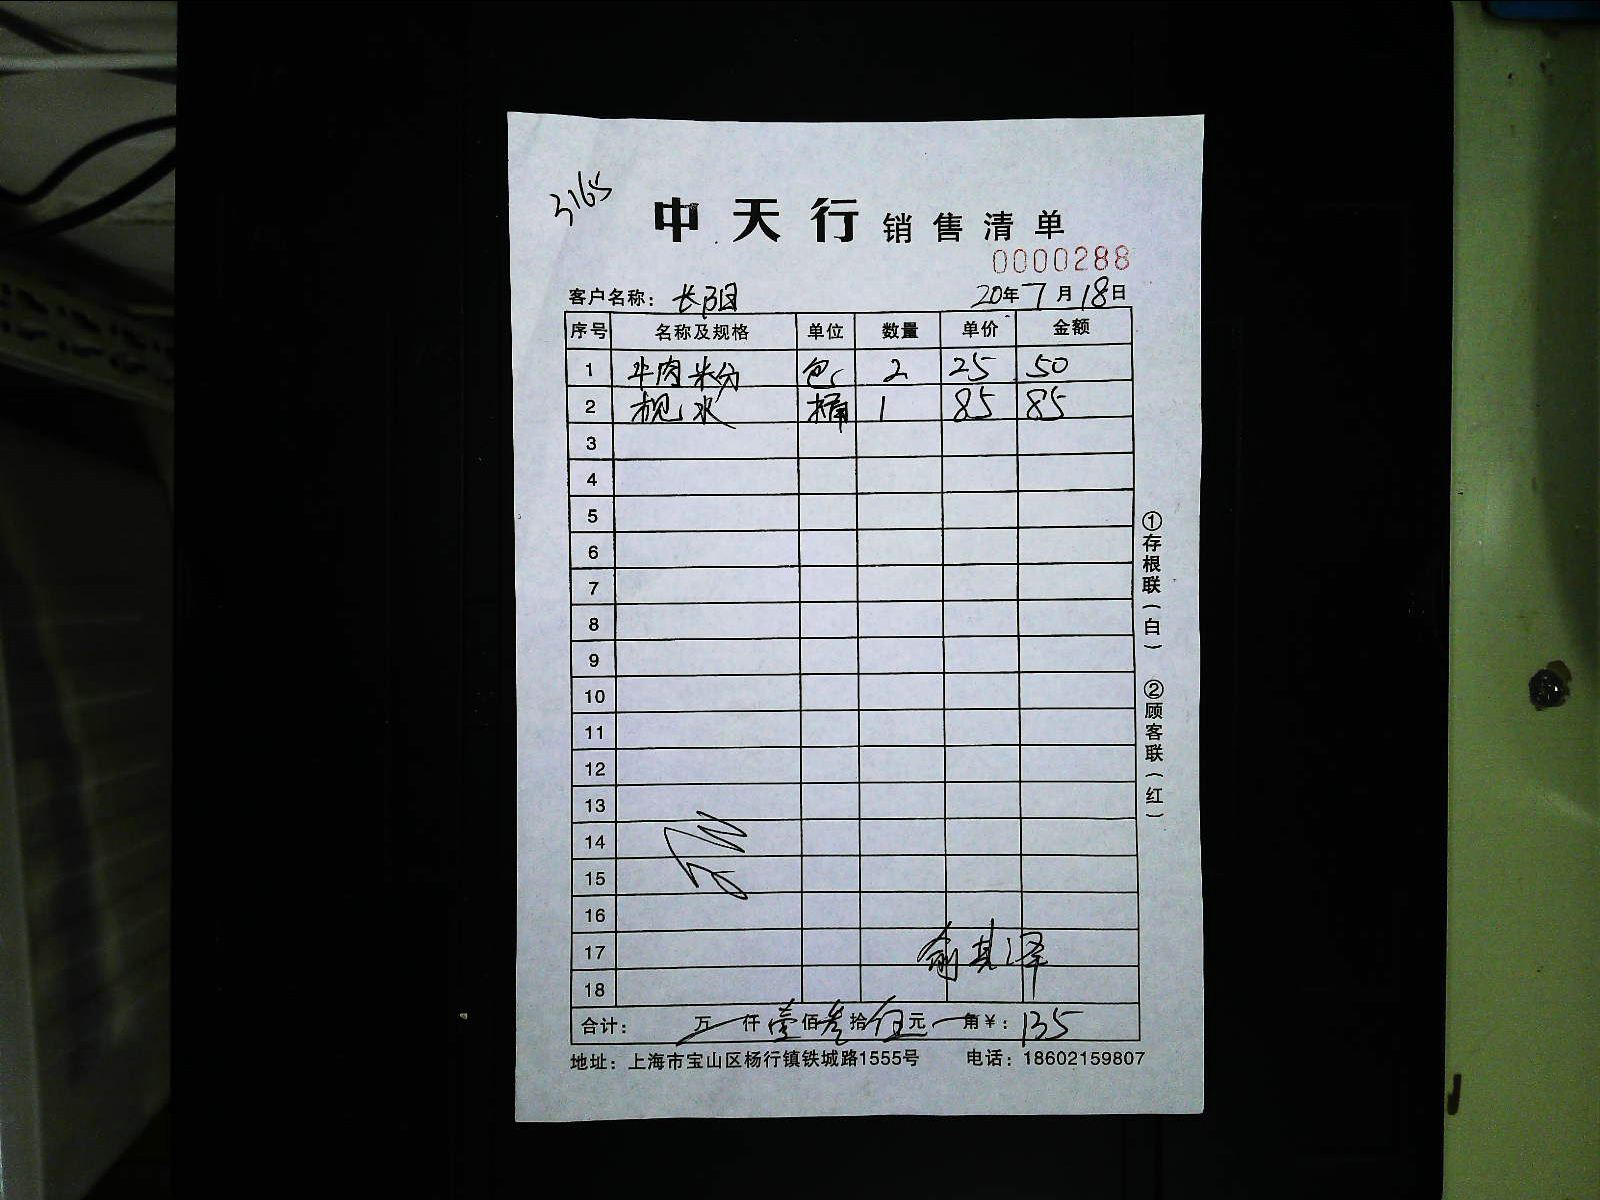 3165
中天行 销售清单
0000288
客户名称： 长阳 20年7月18日
序号 名称及规格 单位 数量 单价 金额
1 牛肉米分 包 2 25 50
2 枧水 桶 1 85 85
3
4
5
6
7
8
9
10
11
12
13
14
15
16
17 俞其泽
18
合计： 万 仟 壹佰叁拾伍元 角 ¥： 135
地址：上海市宝山区杨行镇铁城路1555号 电话：18602159807
①存根联（白） ②顾客联（红）